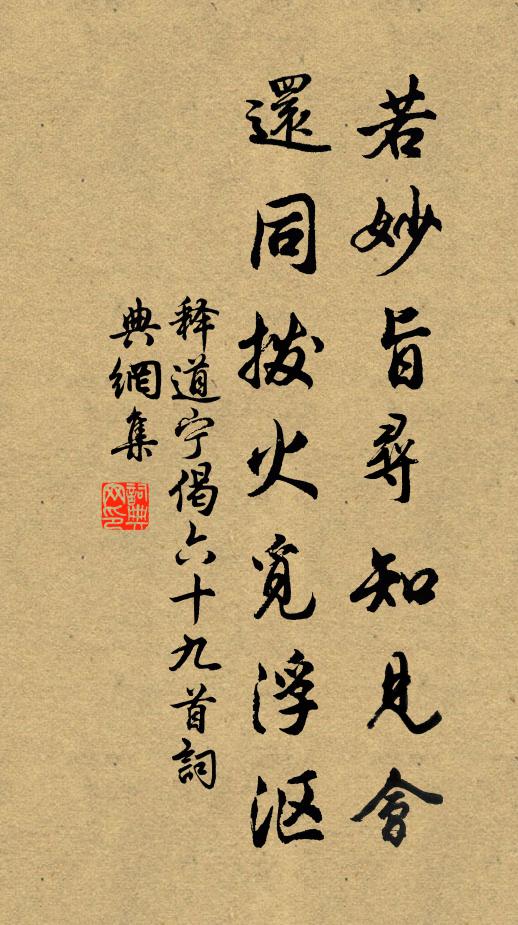 若妙旨尋知見會
還同拨火覓浮沤
释道宁偈六十九首詞
典網集
詞典
网印